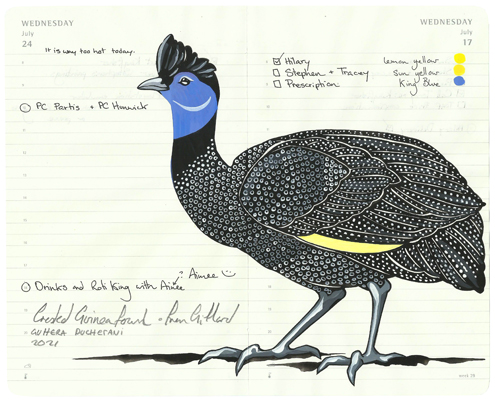 WEDNESDAY
July
24
It is way too hot today.
PC Partis + PC Hunnick
WEDNESDAY
July
17
Hilary
Stephen + Tracey
Prescription
lemon yellow
sun yellow
King Blue
Aimee
Drinks and Roti King with Aimee
Crested Guineafowl
GUTTERA PUCHERANI
2021